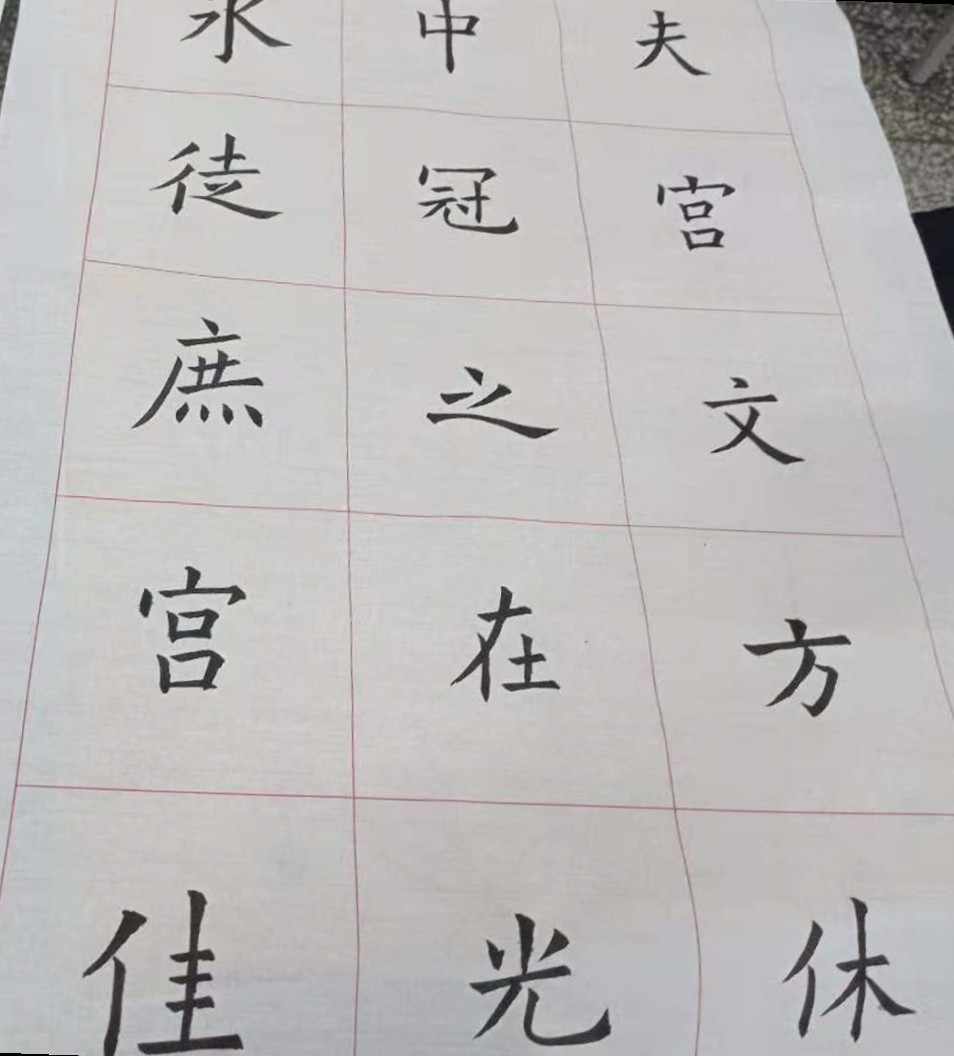 中 夫
徒 冠 宫
庶 之 文
宫 在 方
佳 光 休